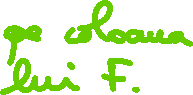 pe coloana
lui F.